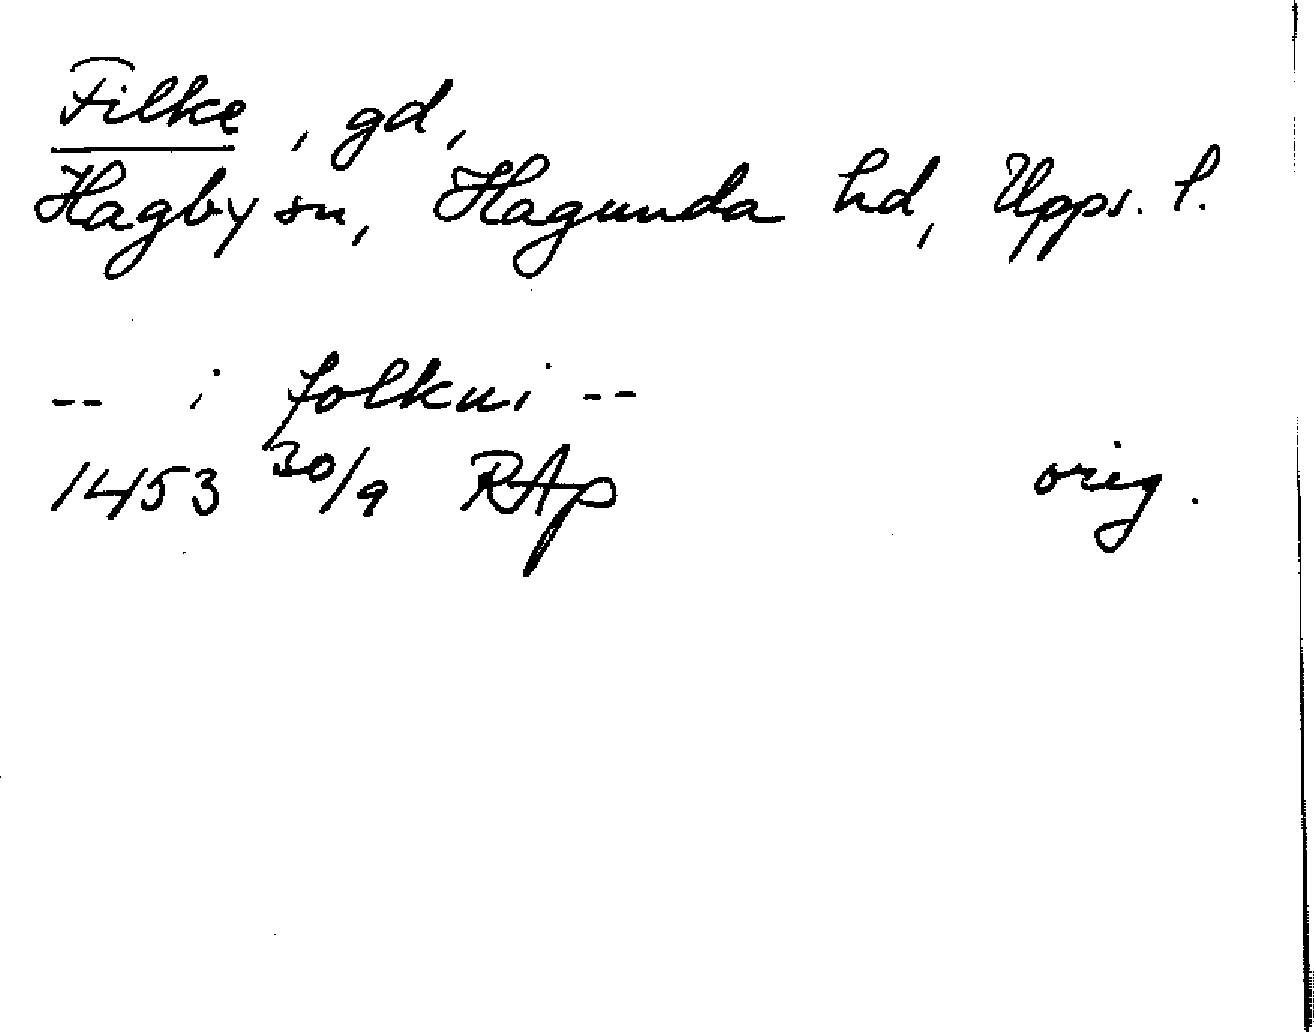 Filke, gd,
Hagby sn, Hagunda hd, Upps. l.
-- i folkui --
1453 30/9 RAp orig.